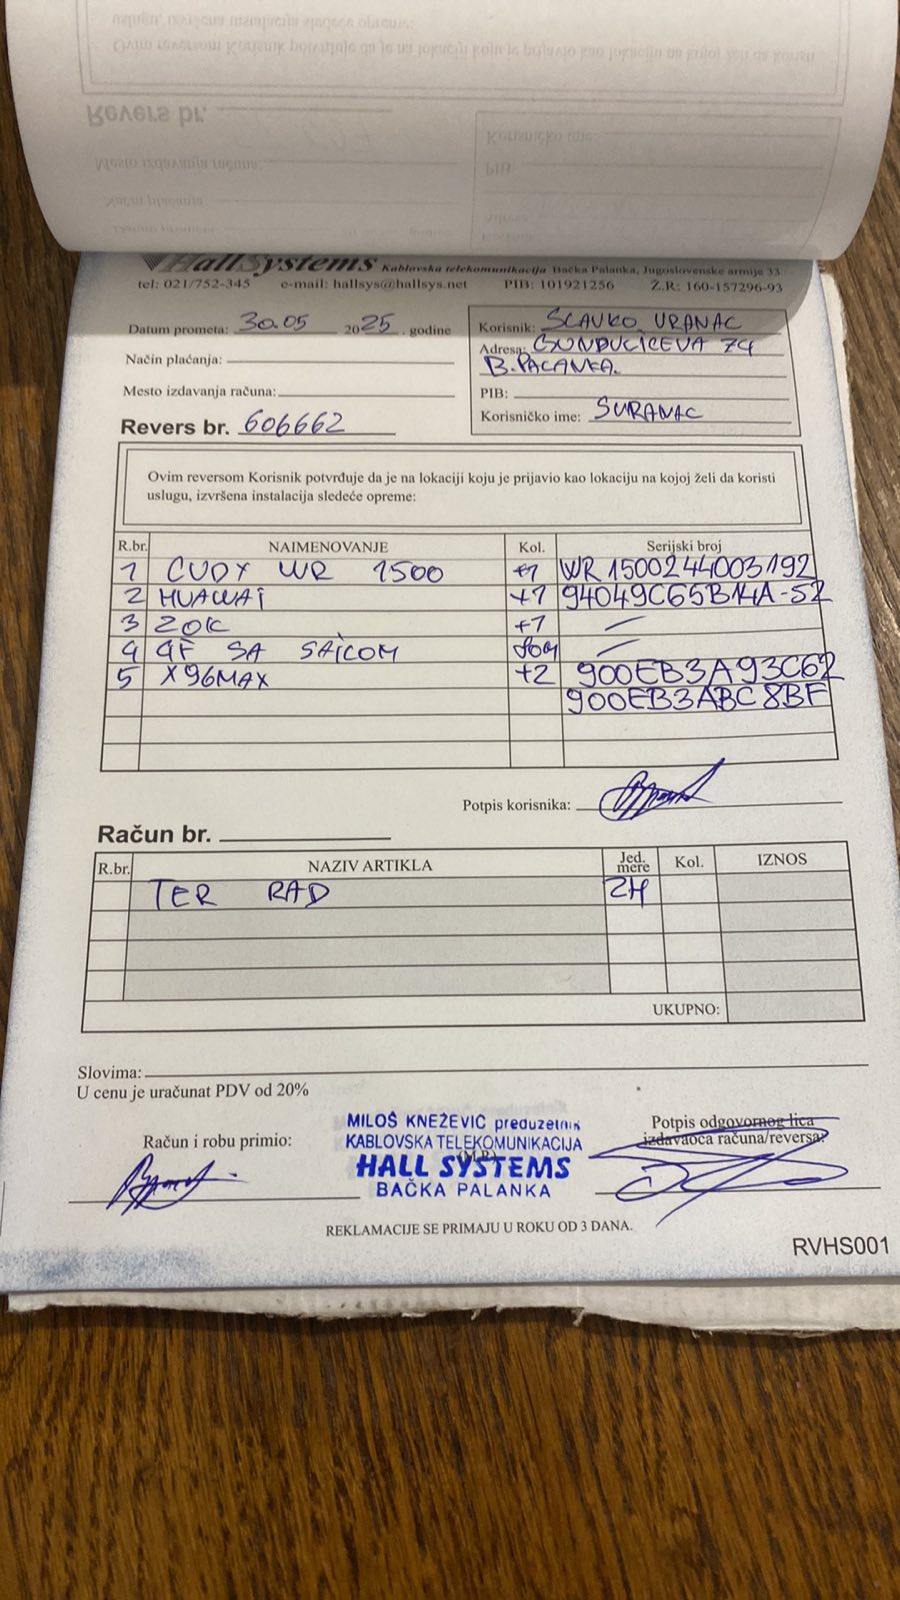 HallSystems Kablovska telekomunikacija Bačka Palanka, Jugoslovenske armije 33
tel: 021/752-345 e-mail: hallsys@hallsys.net PIB: 101921256 Ž.R: 160-157296-93
Datum prometa: 30.05 2025. godine
Način plaćanja:
Mesto izdavanja računa:
Revers br. 606662
Korisnik: SLAVKO VRANAC
Adresa: GUNDULIĆEVA 74
B. PALANKA.
PIB:
Korisničko ime: SVRANAC
Ovim reversom Korisnik potvrđuje da je na lokaciji koju je prijavio kao lokaciju na kojoj želi da koristi
uslugu, izvršena instalacija sledeće opreme:
R.br. NAIMENOVANJE Kol. Serijski broj
1 CUDY WR 1500 +1 WR1500244003192
2 HUAWAi +1 94049C65B14A-52
3 ZOK +1
4 4F SA SAiCOM
5 X96MAX +2 900EB3A93C62
900EB3ABC8BF
Potpis korisnika:
Račun br.
R.br. NAZIV ARTIKLA Jed. mere Kol. IZNOS
TER RAD 2H
UKUPNO:
Slovima:
U cenu je uračunat PDV od 20%
Račun i robu primio:
MILOŠ KNEŽEVIĆ preduzetnik
KABLOVSKA TELEKOMUNIKACIJA
(M.P.)
HALL SYSTEMS
BAČKA PALANKA
Potpis odgovornog lica
izdavaoca računa/reversa:
REKLAMACIJE SE PRIMAJU U ROKU OD 3 DANA.
RVHS001